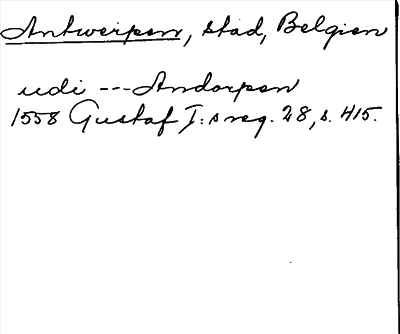 Antwerpen, stad, Belgien
udi --- Andorpen
1558 Gustaf I:s reg. 28, s. 415.